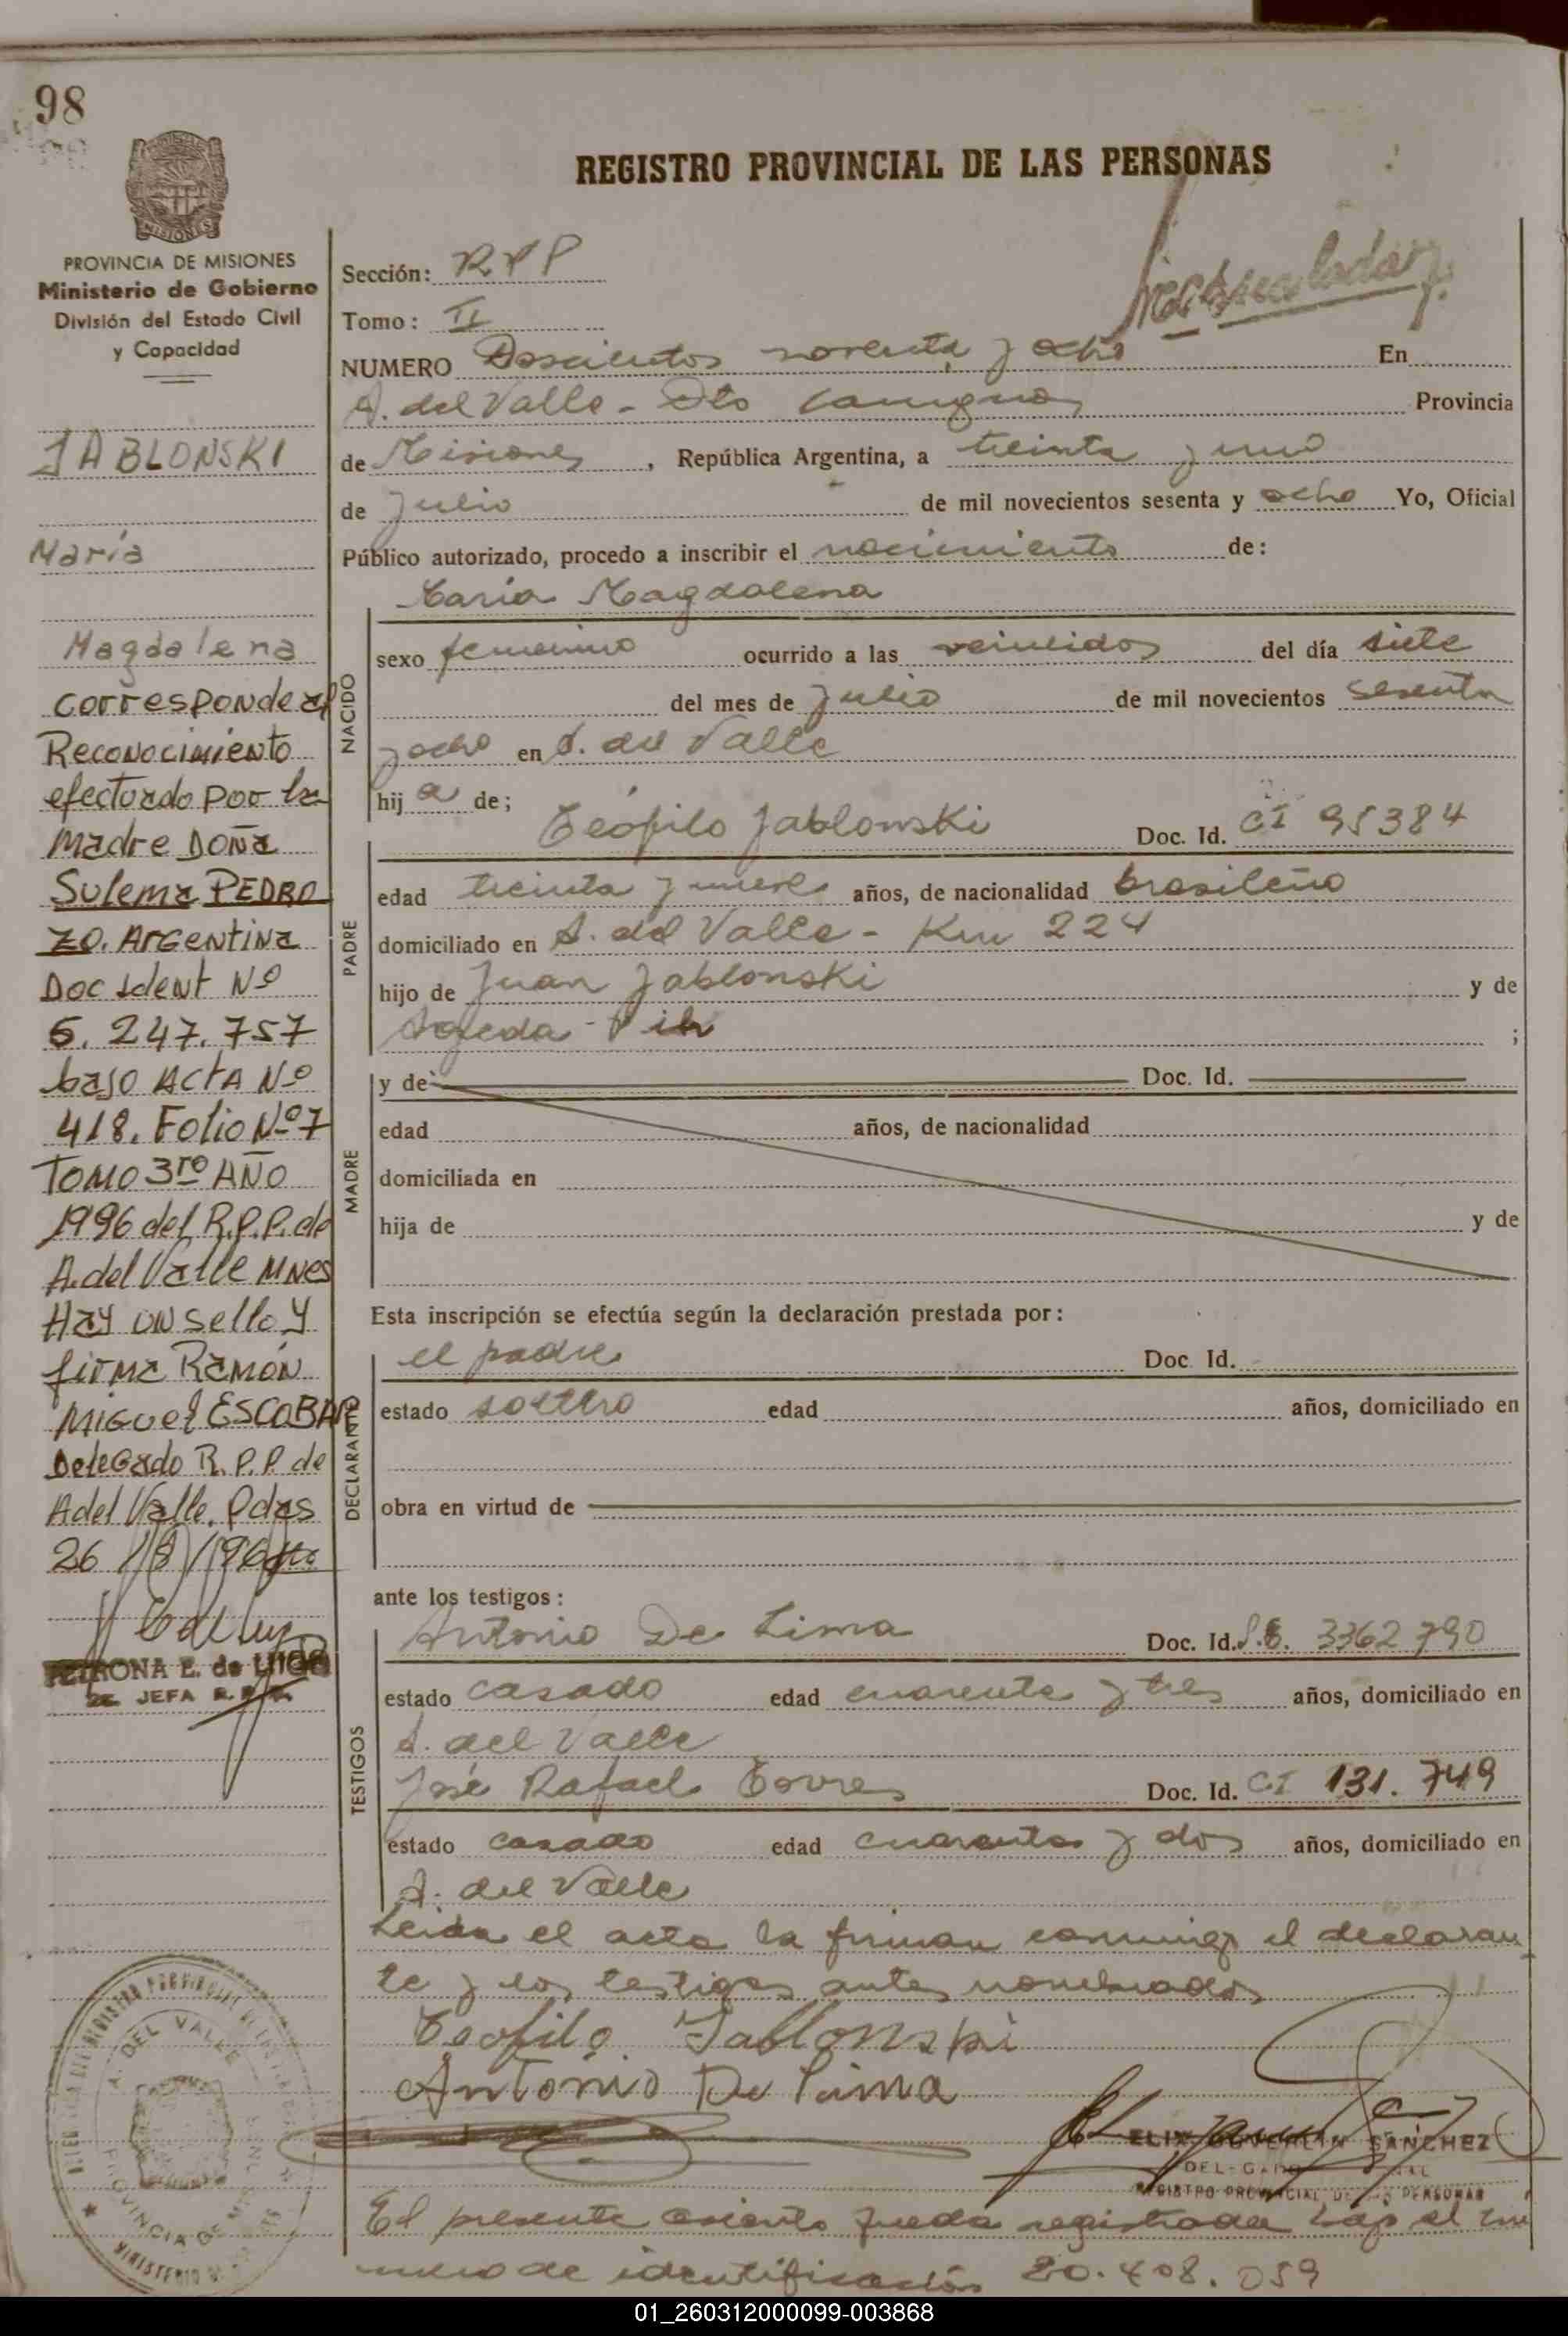 98
REGISTRO PROVINCIAL DE LAS PERSONAS
MISIONES
PROVINCIA DE MISIONES
Ministerio de Gobierno
División del Estado Civil
y Capacidad
JABLONSKI
María
Magdalena
corresponde al
Reconocimiento
efectuado por la
Madre Doña
Sulema PEDRO
ZO. Argentina
Doc Ident Nº
6.247.757
bajo ACTA Nº
418. Folio Nº 7
TOMO 3ro AÑO
1996 del R.P.P. de
A. del Valle Mnes
Hay un sello y
firma Ramón
Miguel ESCOBAR
Delegado R.P.P. de
A del Valle. Pdas
26/8/96
PETRONA E. de LUGO
2ª JEFA R.P.P.
Sección: RPP
Tomo: II
NUMERO Doscientos noventa y ocho En
A. del Valle - Dto Cainguás Provincia
de Misiones, República Argentina, a treinta y uno
de julio de mil novecientos sesenta y ocho Yo, Oficial
Público autorizado, procedo a inscribir el nacimiento de:
María Magdalena
NACIDO
sexo femenino ocurrido a las veintidos del día siete
del mes de julio de mil novecientos sesenta
y ocho en A. del Valle
hija de; Teófilo Jablonski Doc. Id. CI 95384
PADRE
edad treinta y nueve años, de nacionalidad brasileño
domiciliado en A. del Valle - Km 224
hijo de Juan Jablonski y de
Agueda ;
MADRE
y de Doc. Id.
edad años, de nacionalidad
domiciliada en
hija de y de
Esta inscripción se efectúa según la declaración prestada por:
DECLARANTE
el padre Doc. Id.
estado soltero edad años, domiciliado en
obra en virtud de
ante los testigos:
TESTIGOS
Antonio De Lima Doc. Id. L.E. 3362790
estado casado edad cuarenta y tres años, domiciliado en
A. del Valle
José Rafael Torres Doc. Id. CI 131.749
estado casado edad cuarenta y dos años, domiciliado en
A. del Valle
Leida el acta la firman conmigo el declaran
te y los testigos antes nombrados
Teofilo Jablonski
Antonio De Lima
SANCHEZ
REGISTRO PROVINCIAL DE LAS PERSONAS
A. DEL VALLE
PROVINCIA DE MISIONES
El presente asiento queda registrada bajo el nú
mero de identificación 20.408.059
01_260312000099-003868